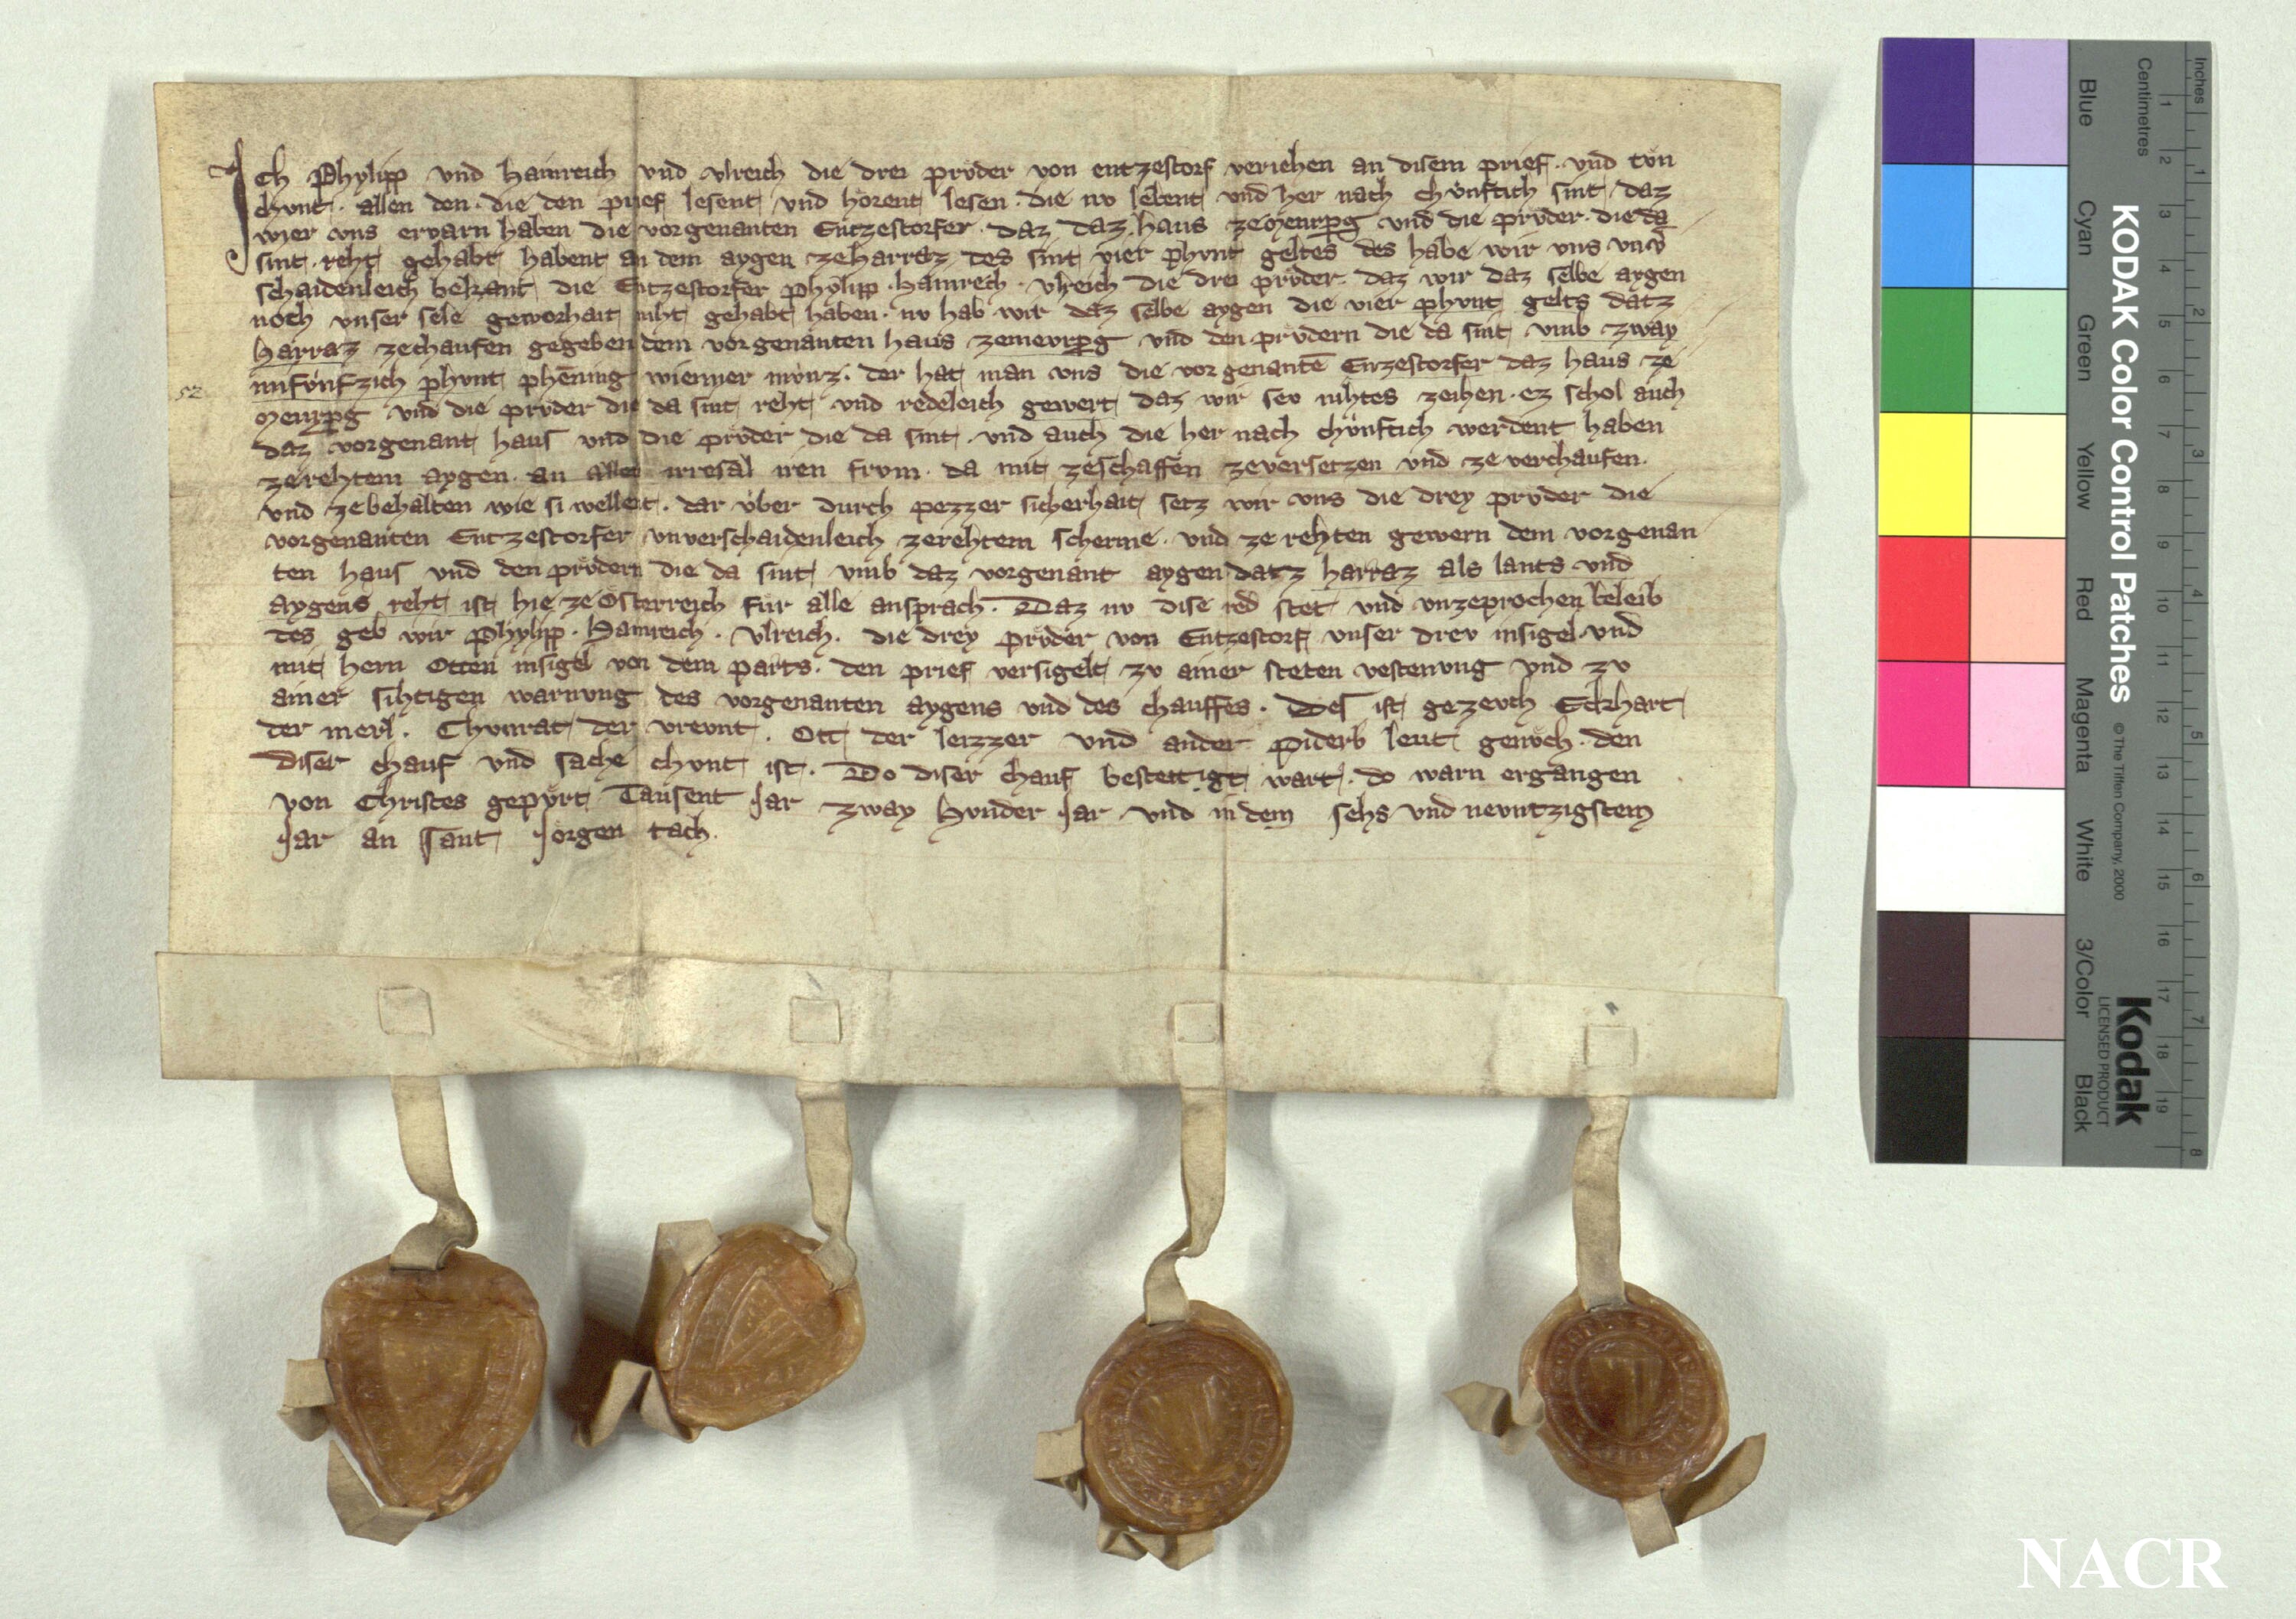 Ich Phylipp und Hainreich und Vlreich die drei prvder von entzestorf veriehen an disem prief. und tvn
chvnt. allen den. die den prief lesent und hörent lesen. die nv lebent und her nach chvnftich sint daz
wier vns ervarn haben die vorgenanten Entzestorfer. daz daz haus ze Mevrperg und die prvder. die da
sint. reht gehabt habent an dem aygen ze harraz des sint vier phvnt geltes des habe wir vns vnver
schaidenleich bekant die Entzestorfer Phylipp. Hainreich. Vlreich die drei prvder. daz wir daz selbe aygen
noch vnser sele geworhait niht gehabt haben. nv hab wir daz selbe aygen die vier phvnt gelts datz
Harraz ze chaufen gegeben dem vorgenanten haus ze mevrperg und den prvdern die da sint vmb zway
vnfvnfzich phvnt phenning wienner mvnz. der hat man vns die vorgenanten Entzestorfer daz haus ze
52
Mevrperg und die prvder die da sint reht und redeleich gewert daz wir sev nihtes zeihen. ez schol auch
daz vorgenant haus und die prvder die da sint. und auch die her nach chvnftich werdent haben
ze rehtem aygen. an alle irresal iren frvm. da mit ze schaffen ze versetzen und ze verchaufen.
und ze behalten wie si wellent. dar vber durch pezzer sicherhait setz wir vns die drey prvder die
vorgenanten Entzestorfer vnverschaidenleich ze rehtem scherme. und ze rehten gewern dem vorgenan
ten haus und den prvdern die da sint vmb daz vorgenant aygen datz harraz als lants und
aygens reht ist hie ze Osterreich für alle ansprach. Daz nv dise red stet und vnzeprochen beleib
des geb wir Phylipp. Hainreich. Vlreich. die drey prvder von Entzestorf vnser drev insigel. und
mit hern Otten insigel von dem parts. den prief versigelt zv ainer steten vestenvng und zv
ainer sihtigen warnvng des vorgenanten aygens und des chauffes. Des ist gezevch Ekhart
der merl. Chvnrat der vrevnt. Ott der leizzer und ander piderb levt genvch. den
diser chauf und sache chvnt ist. Do diser chauf bestettigt wart. do warn ergangen
von Christes gepvrt Tausent Jar zway Hvnder Jar und in dem sehs und nevntzigstem
Jar an Sant Jorgen tach.
KODAK Color Control Patches
© The Tiffen Company, 2000
Kodak
LICENSED PRODUCT
Inches
Centimetres
Blue Cyan Green Yellow Red Magenta White 3/Color Black
1 2 3 4 5 6 7 8
1 2 3 4 5 6 7 8 9 10 11 12 13 14 15 16 17 18 19
NACR